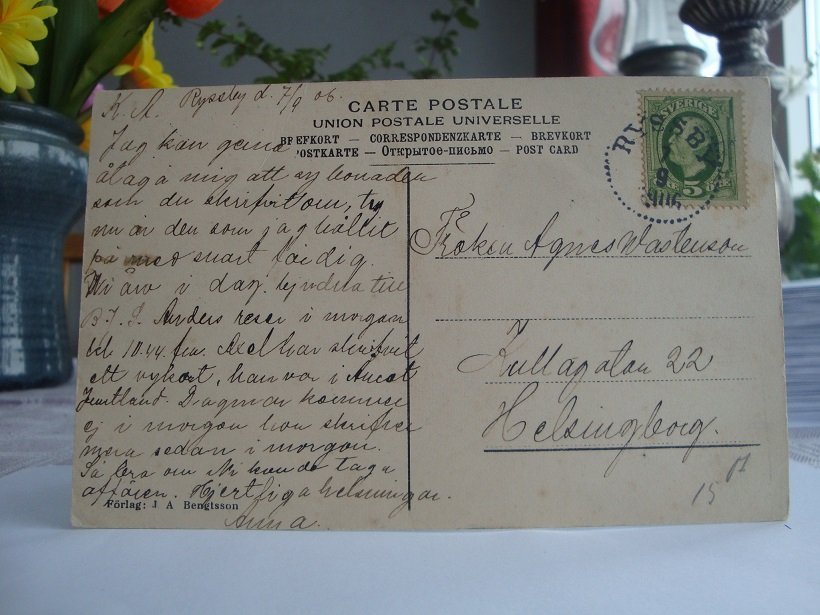 K. A. Ryssby d. 7/9 06.
CARTE POSTALE
UNION POSTALE UNIVERSELLE
BREFKORT — CORRESPONDENZKARTE — BREVKORT
POSTKARTE — Открытое-письмо — POST CARD
Jag kan genra
ålaga mig att sy bonaden
som du skrifvit om, ty
nu är den som jag hållit
på med snart färdig.
Vi äro i dag
Anders reser i morgon
kl. 10.44. fm. Axel har skrifvit
ett vykort, han var i
Jemtland. Dagmar kommer
ej i morgon hon skrifver
mera sedan i morgon.
om Ni kunde taga
affären. Hjertliga helsningar.
Anna.
Förlag: J A Bengtsson
SVERIGE
5
RYSSBY
9
Fröken Agnes Wastenson
Kullagatan 22
Helsingborg.
15